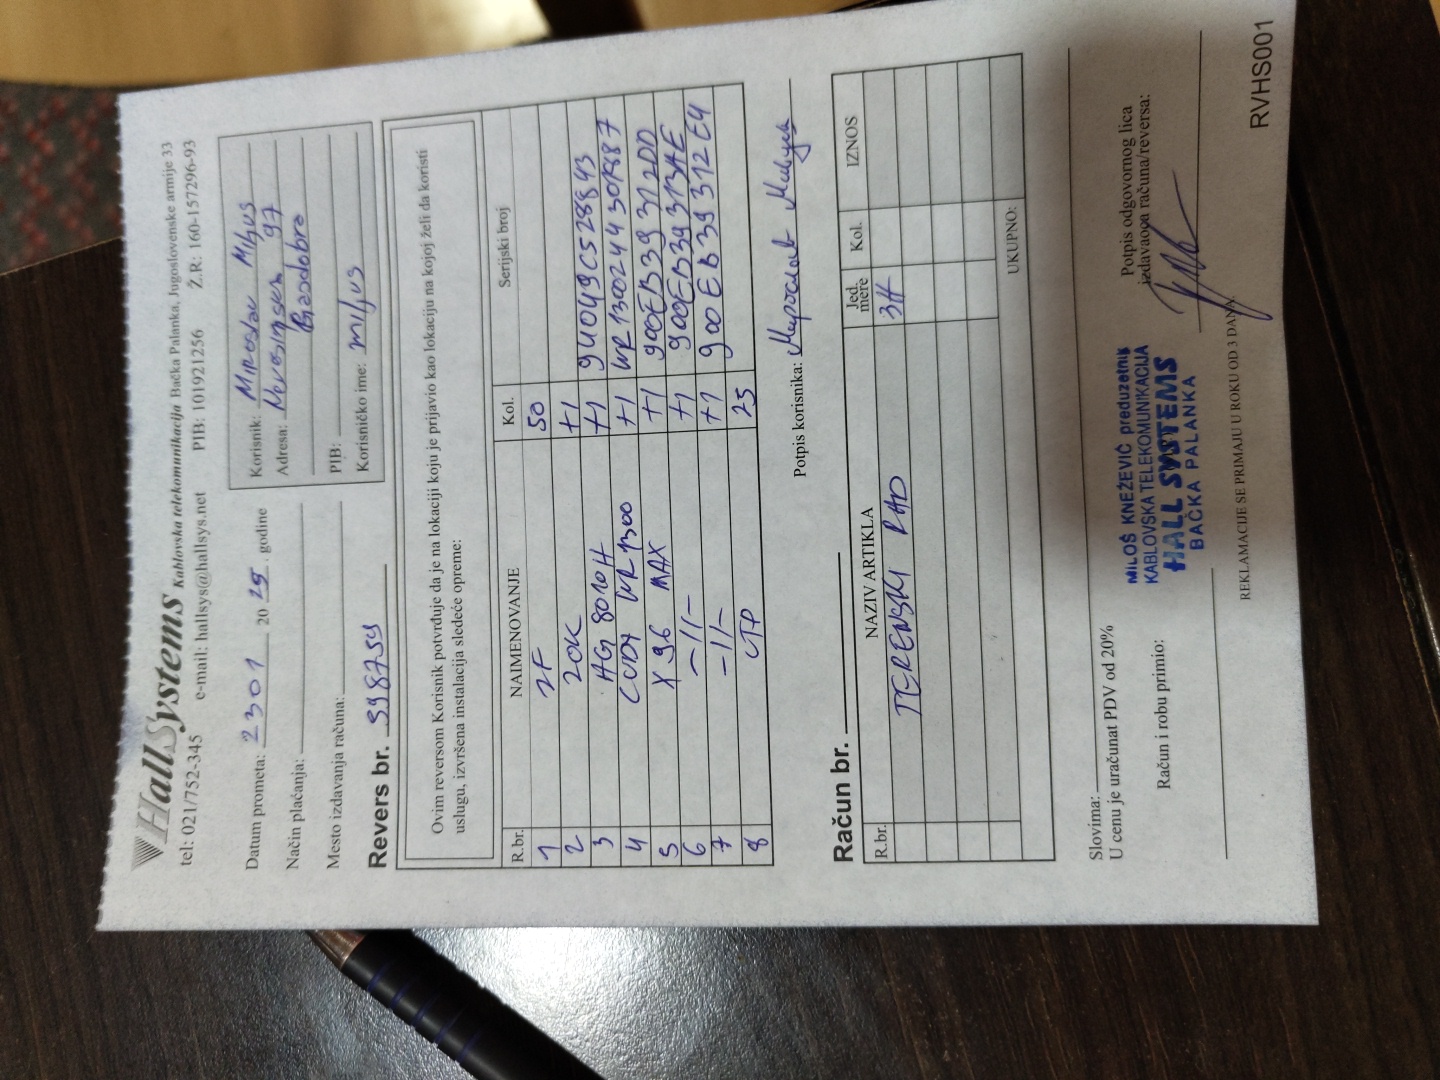 HallSystems Kablovska telekomunikacija Bačka Palanka, Jugoslovenske armije 33
tel: 021/752-345 e-mail: hallsys@hallsys.net PIB: 101921256 Ž.R: 160-157296-93
Datum prometa: 2301 20 25. godine
Način plaćanja:
Mesto izdavanja računa:
Korisnik: Miroslav Miljus
Adresa: 97
PIB:
Korisničko ime: miljus
Revers br. 598759
Ovim reversom Korisnik potvrđuje da je na lokaciji koju je prijavio kao lokaciju na kojoj želi da koristi
uslugu, izvršena instalacija sledeće opreme:
R.br. NAIMENOVANJE Kol. Serijski broj
1 2F 50
2 ZOK +1
3 AG 8010H +1
4 CUDY WR1300 +1
5 X96 MAX +1 900EB39312DD
6 -11- +1 900EB39313AE
7 -11- +1 900EB39312E4
8 UTP 25
Potpis korisnika: Мирослав
Račun br.
R.br. NAZIV ARTIKLA Jed. mere Kol. IZNOS
TERENSKI RAD 3H
UKUPNO:
Slovima:
U cenu je uračunat PDV od 20%
Račun i robu primio:
MILOŠ KNEŽEVIĆ preduzetnik
KABLOVSKA TELEKOMUNIKACIJA
HALL SYSTEMS
BAČKA PALANKA
Potpis odgovornog lica
izdavaoca računa/reversa:
REKLAMACIJE SE PRIMAJU U ROKU OD 3 DANA.
RVHS001